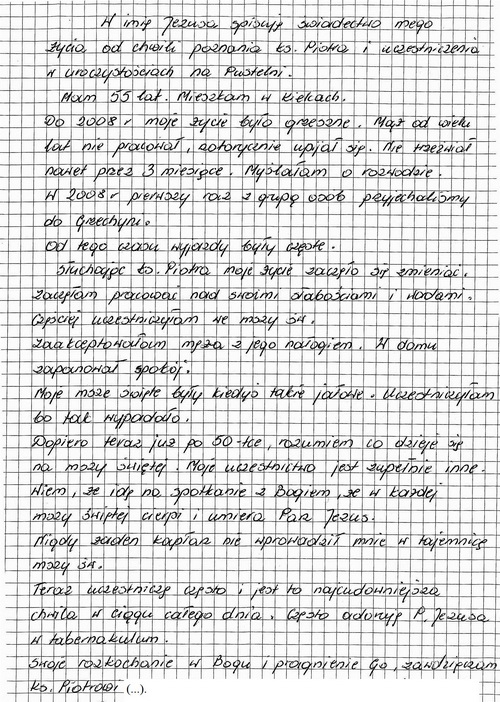 W imię Jezusa spisuję świadectwo mego
życia od chwili poznania ks. Piotra i uczestniczenia
w uroczystościach na Pustelni.
Mam 55 lat. Mieszkam w Kielcach.
Do 2008 r moje życie było grzeszne. Mąż od wielu
lat nie pracował, notorycznie upijał się. Nie trzeźwiał
nawet przez 3 miesiące. Myślałam o rozwodzie.
W 2008 r pierwszy raz z grupą osób przyjechaliśmy
do Grzechyni.
Od tego czasu wyjazdy były częste.
Słuchając ks. Piotra moje życie zaczęło się zmieniać.
Zaczęłam pracować nad swoimi słabościami i wadami.
Częściej uczestniczyłam we mszy św.
Zaakceptowałam męża z jego nałogiem. W domu
zapanował spokój.
Moje msze święte były kiedyś takie jałowe. Uczestniczyłam
bo tak wypadało.
Dopiero teraz już po 50-tce, rozumiem co dzieje się
na mszy świętej. Moje uczestnictwo jest zupełnie inne.
Wiem, że idę na spotkanie z Bogiem, że w każdej
mszy świętej cierpi i umiera Pan Jezus.
Nigdy żaden kapłan nie wprowadził mnie w tajemnicę
mszy św.
Teraz uczestniczę często i jest to najcudowniejsza
chwila w ciągu całego dnia. Często adoruję P. Jezusa
w tabernakulum.
Swoje rozkochanie w Bogu i pragnienie Go, zawdzięczam
ks. Piotrowi (...).